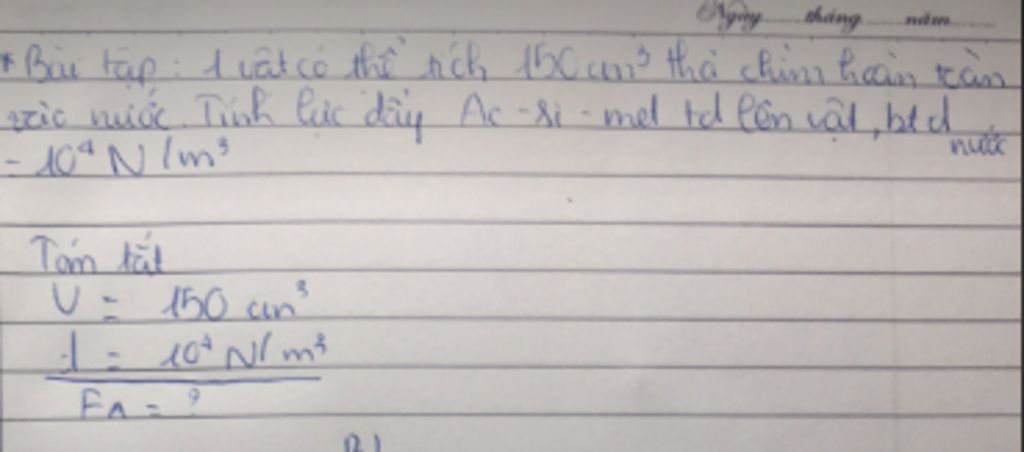 Ngày tháng năm
* Bài tập : 1 vật có thể tích 150 cm³ thả chìm hoàn toàn
nước. Tính lực đẩy Ac - si - met td lên vật, bt d nước
= 10⁴ N/m³
Tóm tắt
V = 150 cm³
d = 10⁴ N/m³
FA = ?